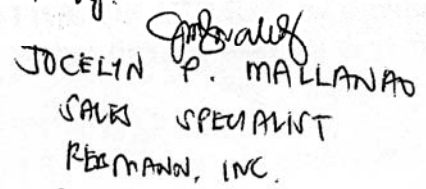 JOCELYN P. MALLANAO
SALES SPECIALIST
REBMANN, INC.